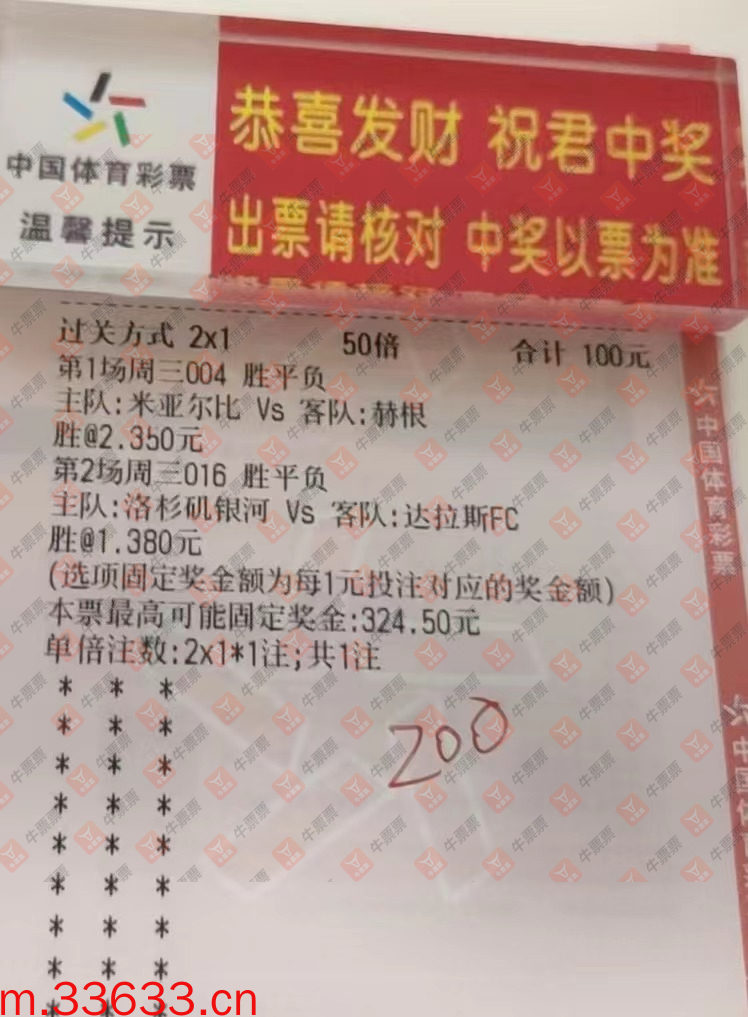 恭喜发财 祝君中奖
中国体育彩票
温馨提示
出票请核对 中奖以票为准
过关方式 2x1 50倍 合计 100元
第1场周三004 胜平负
主队:米亚尔比 Vs 客队:赫根
胜@2.350元
第2场周三016 胜平负
主队:洛杉矶银河 Vs 客队:达拉斯FC
胜@1.380元
(选项固定奖金额为每1元投注对应的奖金额)
本票最高可能固定奖金:324.50元
单倍注数:2x1*1注;共1注
* * *
* * *
* * *
* * *
* * *
* * *
* * *
* * *
* * *
200
中国体育彩票
中国体育
牛票票
m.33633.cn